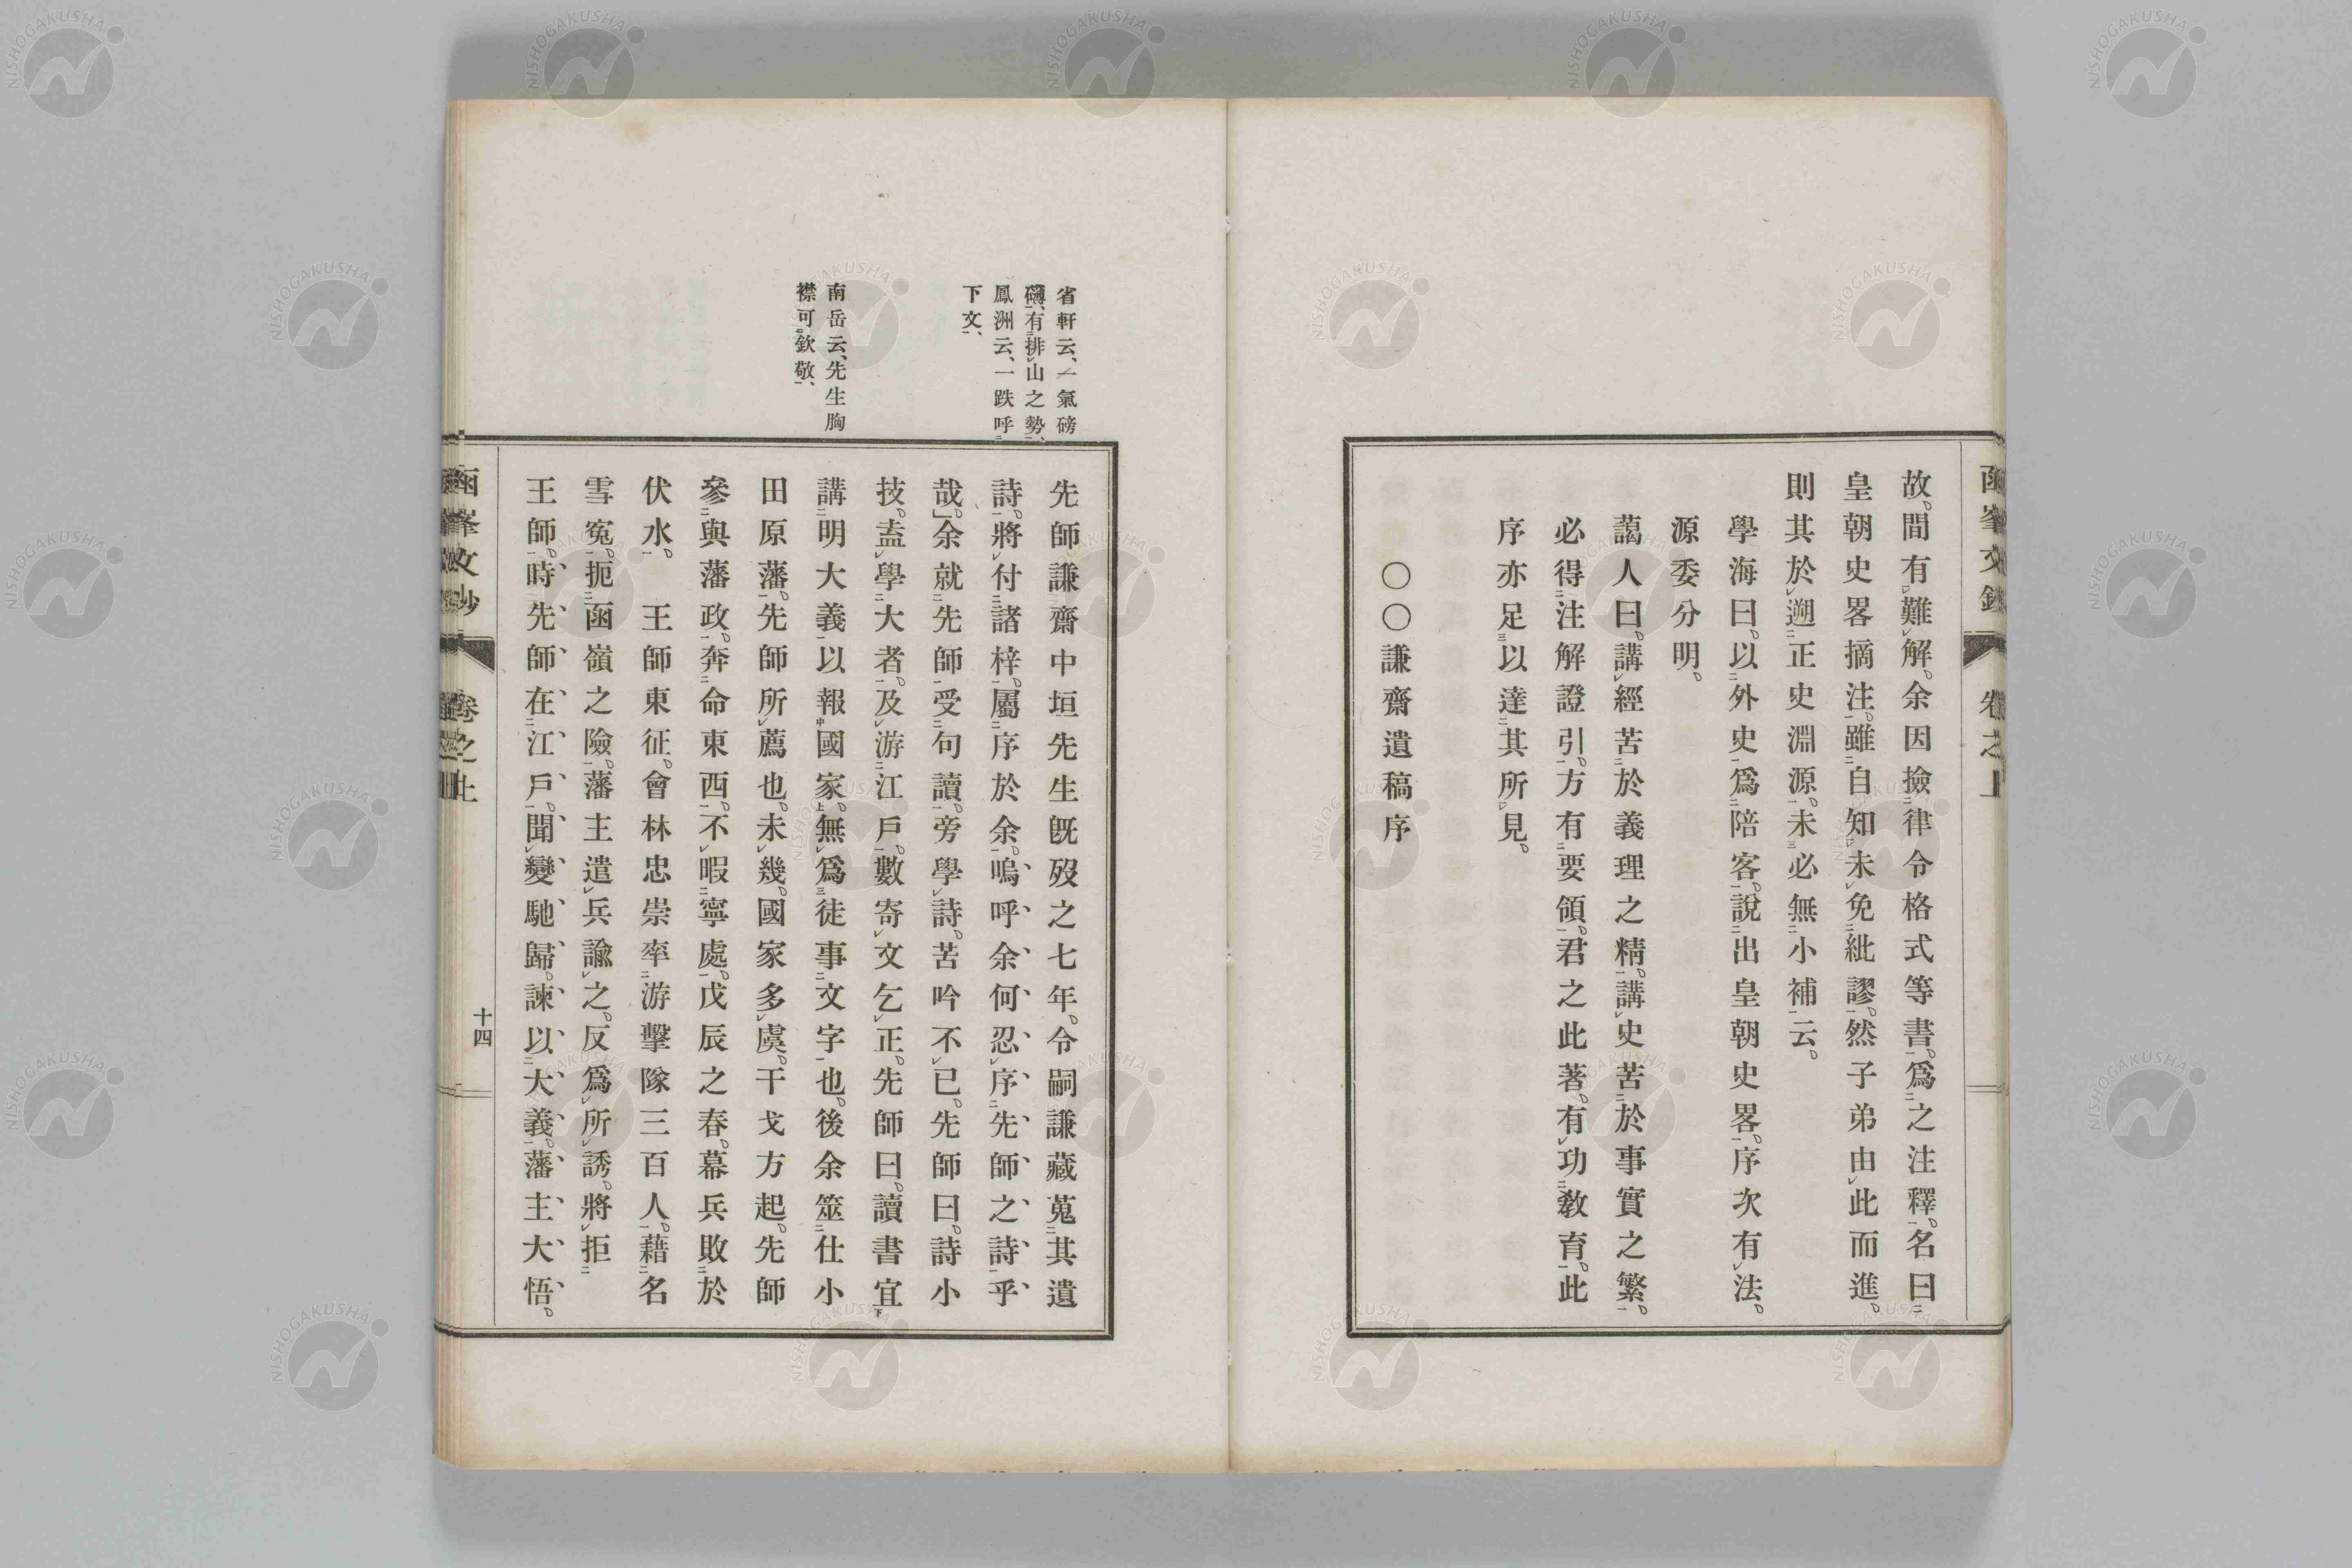 故。間有難解。余因撿律令格式等書。爲之注釋。名曰
皇朝史畧摘注。雖自知未免紕謬。然子弟由此而進。
則其於遡正史淵源。未必無小補云。
學海曰。以外史爲陪客。說出皇朝史畧。序次有法。
源委分明。
藹人曰。講經苦於義理之精。講史苦於事實之繁。
必得注解證引。方有要領。君之此著。有功敎育。此
序亦足以達其所見。
〇〇謙齋遺稿序
函峯文鈔 卷之上
省軒云、一氣磅
礴、有排山之勢、
鳳洲云、一跌呼
下文、
南岳云、先生胸
襟可欽敬、
先師謙齋中垣先生旣歿之七年。令嗣謙藏蒐其遺
詩。將付諸梓。屬序於余。嗚呼余何忍序先師之詩乎
哉。」余就先師受句讀。旁學詩。苦吟不已。先師曰。詩小
技。盍學大者。及游江戶。數寄文乞正。先師曰。讀書宜
講明大義以報國家。無爲徒事文字也。後余筮仕小
田原藩。先師所薦也。未幾。國家多虞。干戈方起。先師
參與藩政。奔命東西。不暇寧處。戊辰之春。幕兵敗於
伏水。 王師東征。會林忠崇率游擊隊三百人。藉名
雪寃。扼函嶺之險。藩主遣兵諭之。反爲所誘。將拒
王師。時、先、師、在、江、戶。聞、變、馳、歸。諫、以、大、義。藩、主、大、悟。
函峯文鈔 卷之上 十四
NISHOGAKUSHA